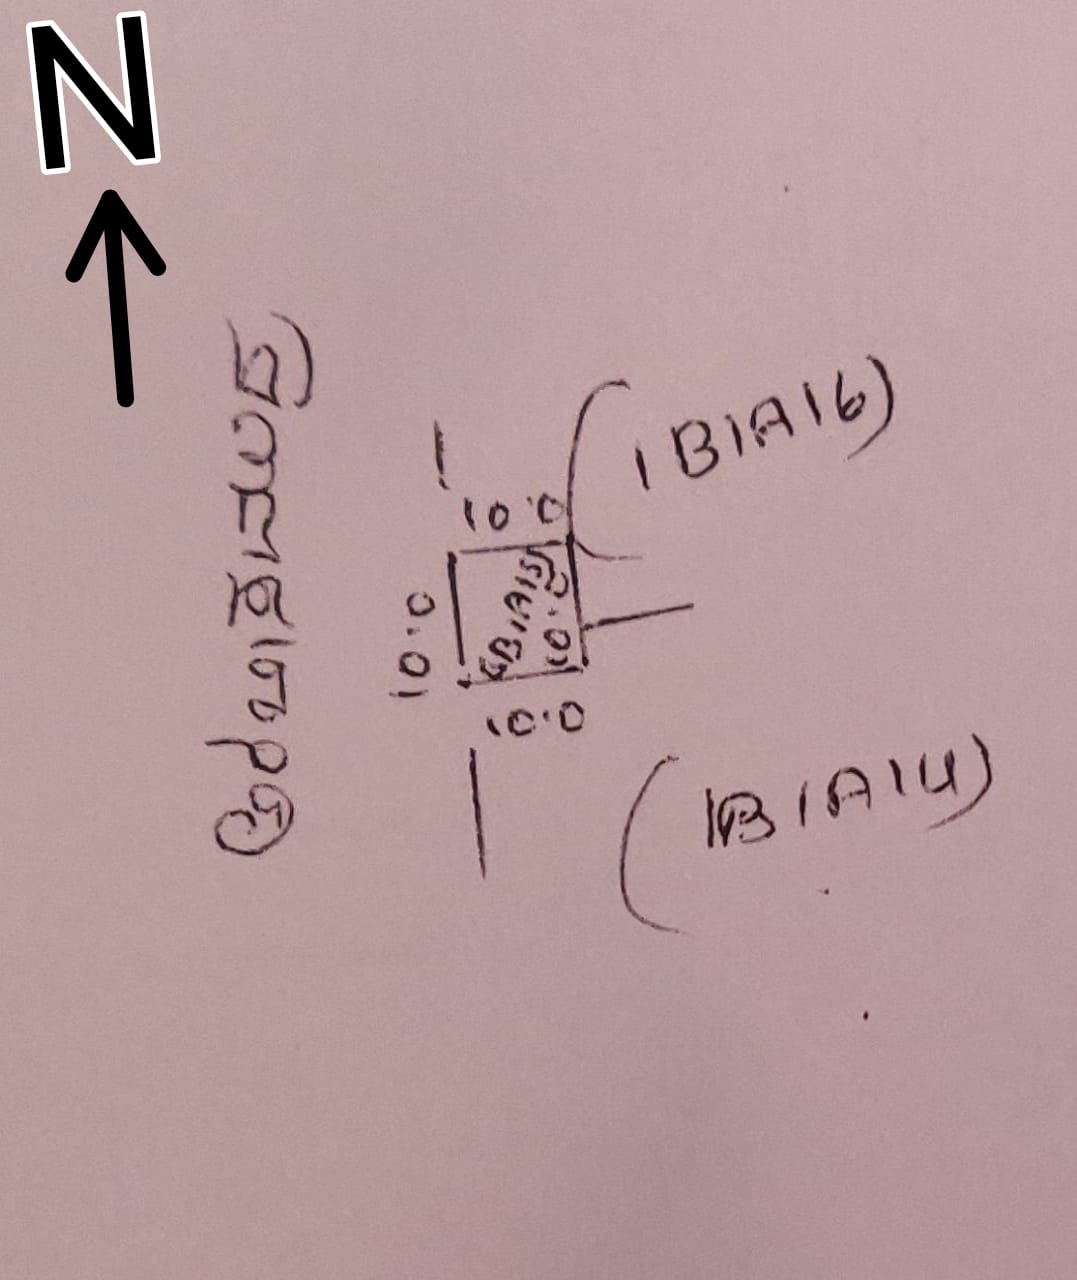 N
(1B1A16)
10.0
10.0
1B1A15
10.0
10.0
(1B1A14)